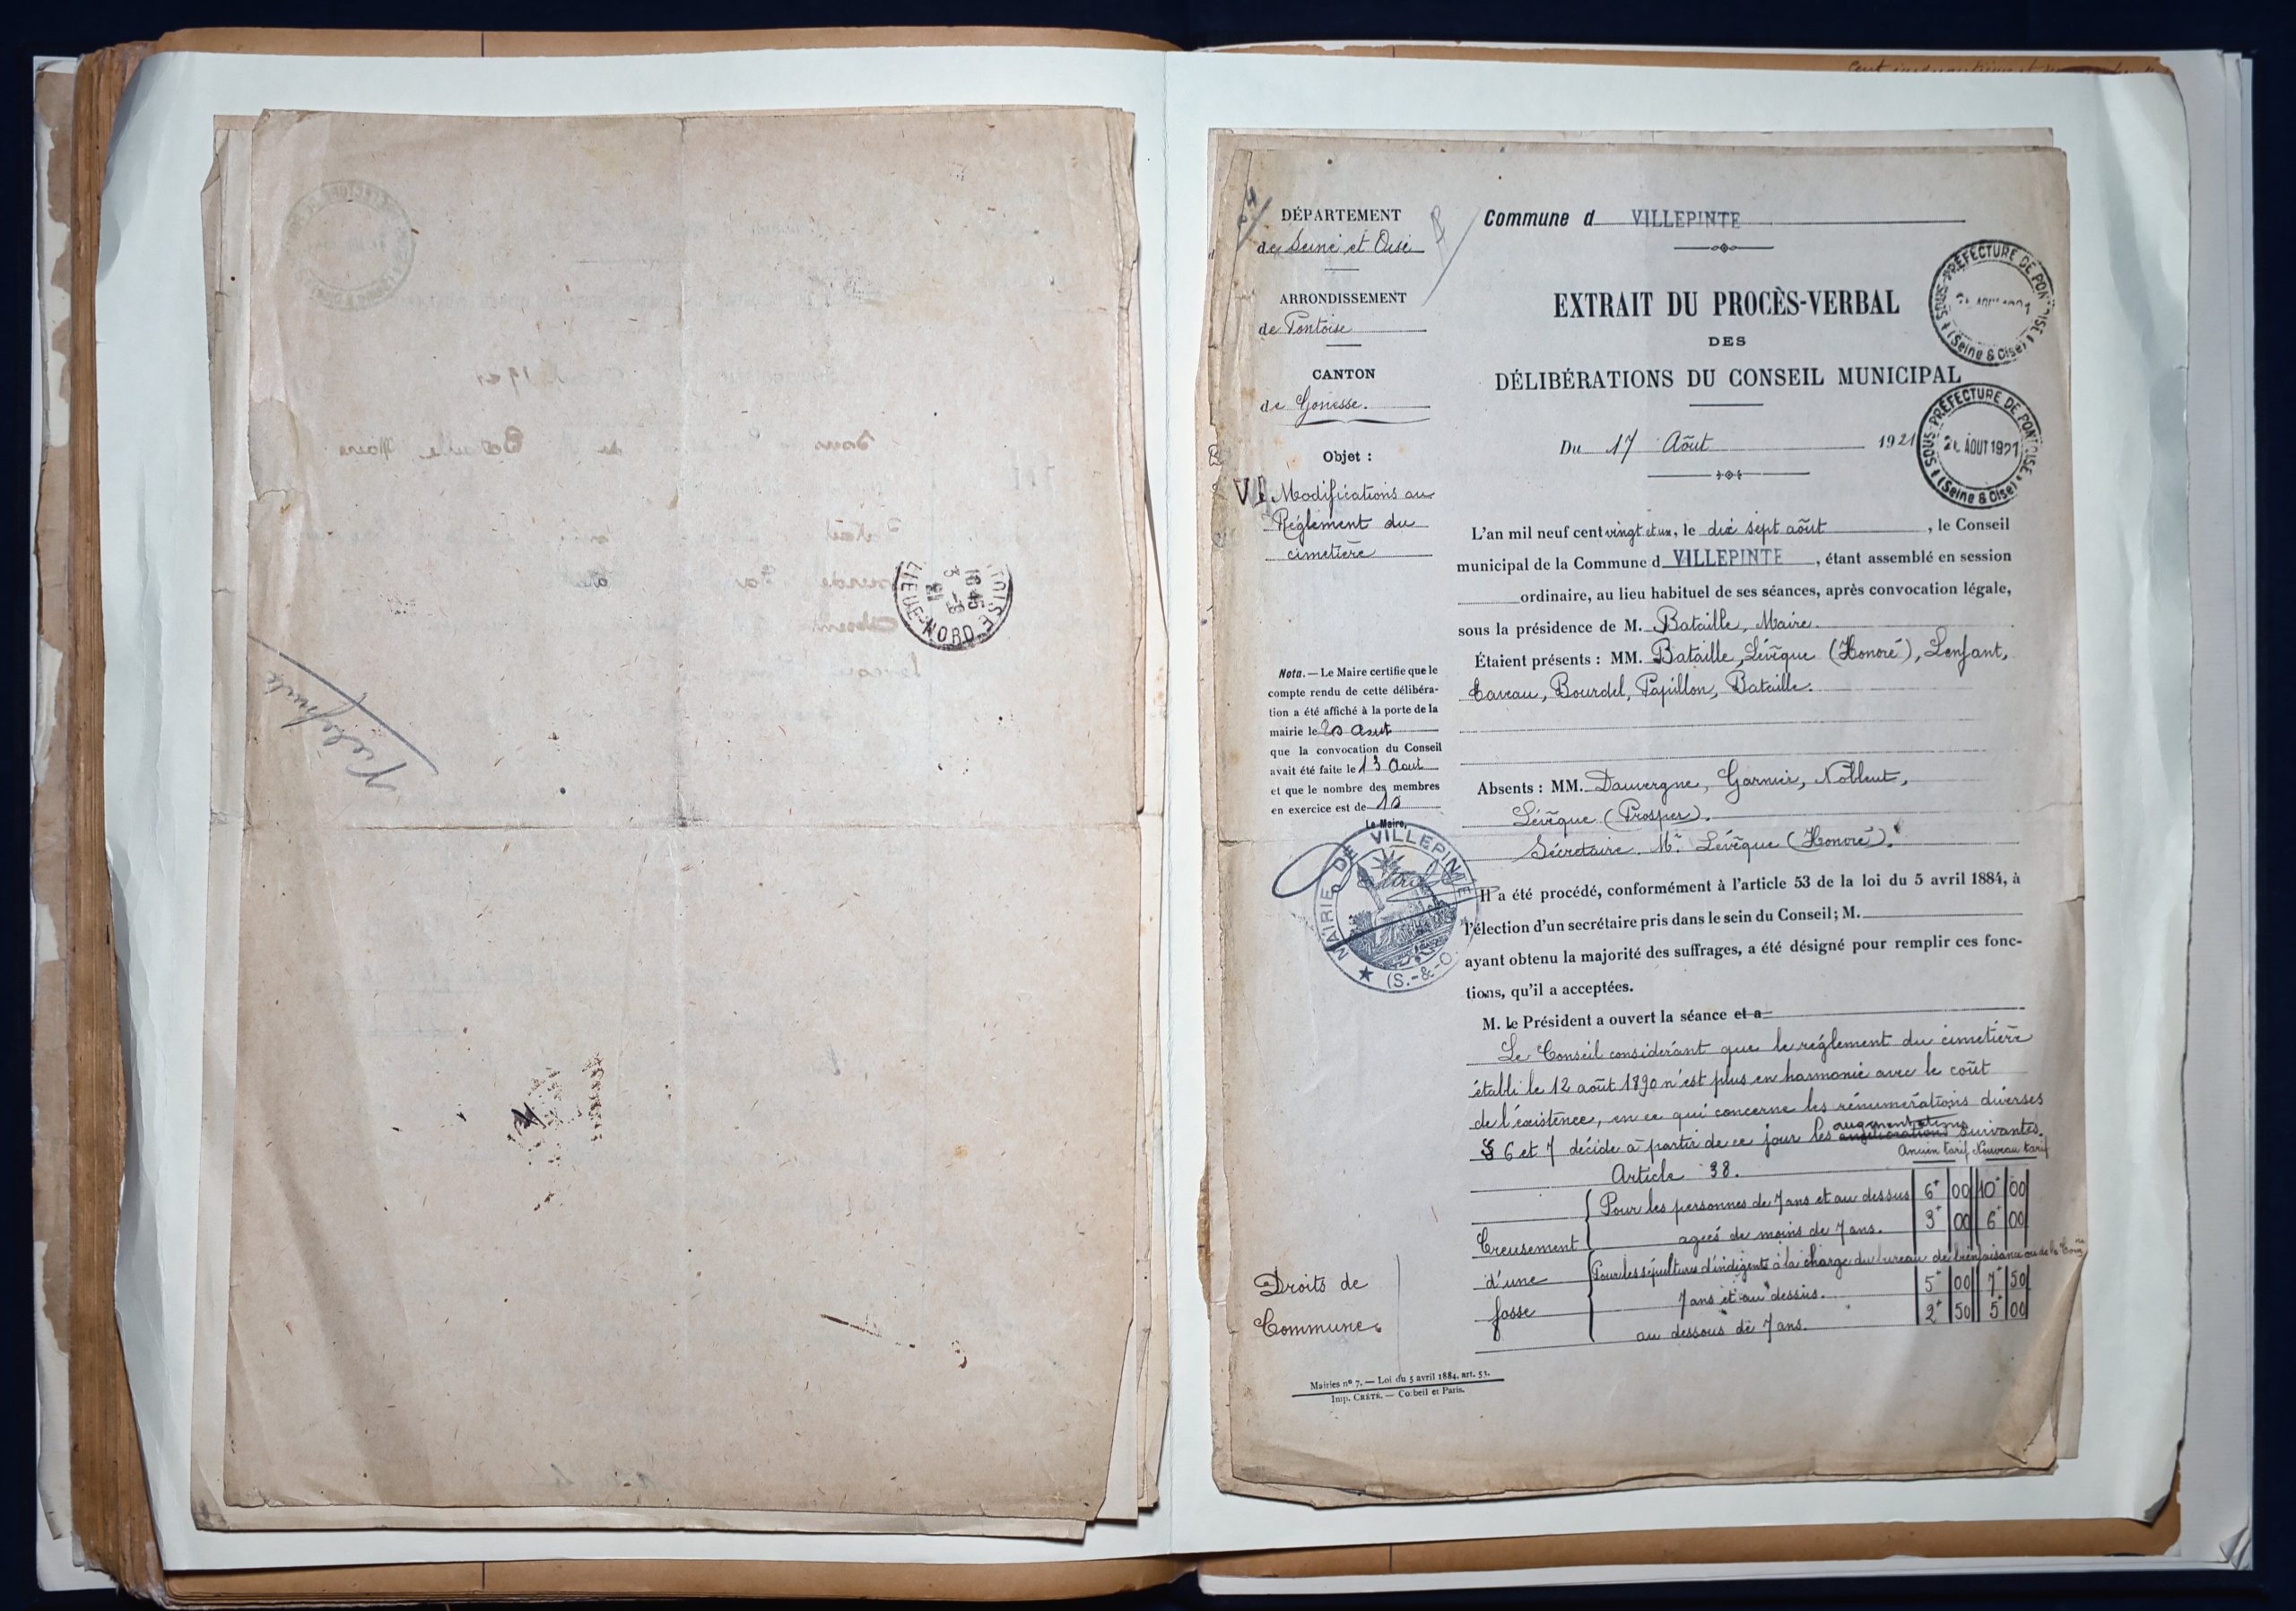 DÉPARTEMENT
de Seine et Oise
ARRONDISSEMENT
de Pontoise
CANTON
de Gonesse.
Objet :
Modifications au
Réglement du
cimetière
Nota. — Le Maire certifie que le
compte rendu de cette délibéra-
tion a été affiché à la porte de la
mairie le 20 Aout
que la convocation du Conseil
avait été faite le 13 Aout
et que le nombre des membres
en exercice est de 10
Le Maire,
MAIRIE DE VILLEPINTE
(S.-&-O
Commune d VILLEPINTE
EXTRAIT DU PROCÈS-VERBAL
DES
DÉLIBÉRATIONS DU CONSEIL MUNICIPAL
SOUS-PRÉFECTURE DE PONTOISE
(Seine & Oise)
SOUS-PRÉFECTURE DE PONTOISE
AOUT 1921
(Seine & Oise)
Du 17 Août 1921
L'an mil neuf cent vingt et un, le dix sept août , le Conseil
municipal de la Commune d VILLEPINTE , étant assemblé en session
ordinaire, au lieu habituel de ses séances, après convocation légale,
sous la présidence de M. Bataille, Maire.
Étaient présents : MM. Bataille, Lévêque (Honoré), Lenfant,
Caveau, Bourdel, Papillon, Bataille.
Absents : MM. Dauvergne, Garnier, Nobleut,
Lévêque (Prosper).
Sécretaire. Mr Lévêque (Honoré).
Il a été procédé, conformément à l'article 53 de la loi du 5 avril 1884, à
l'élection d'un secrétaire pris dans le sein du Conseil ; M.
ayant obtenu la majorité des suffrages, a été désigné pour remplir ces fonc-
tions, qu'il a acceptées.
M. le Président a ouvert la séance et a
Le Conseil considérant que le réglement du cimetière
établi le 12 août 1890 n'est plus en harmonie avec le coût
de l'existence, en ce qui concerne les rénumerations diverses
augmentations
§ 6 et 7 décide à partir de ce jour les améliorations suivantes.
Ancien tarif Nouveau tarif
Article 38.
Pour les personnes de 7 ans et au dessus 6f 00 10f 00
Creusement agées de moins de 7 ans. 3f 00 6f 00
d'une Pour les sépultures d'indigents à la charge du bureau de bienfaisance ou de la Comne
7 ans et au dessus. 5f 00 7f 50
fosse au dessous de 7 ans. 2f 50 5f 00
Droits de
Commune.
Mairies nº 7. — Loi du 5 avril 1884, art. 53.
Imp. CRÉTÉ. — Corbeil et Paris.